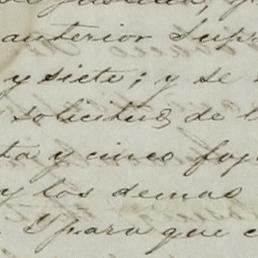 anterior Supr
y siete; y se
solicitud de l
ta y cinco foj
y los demas
Y para que c